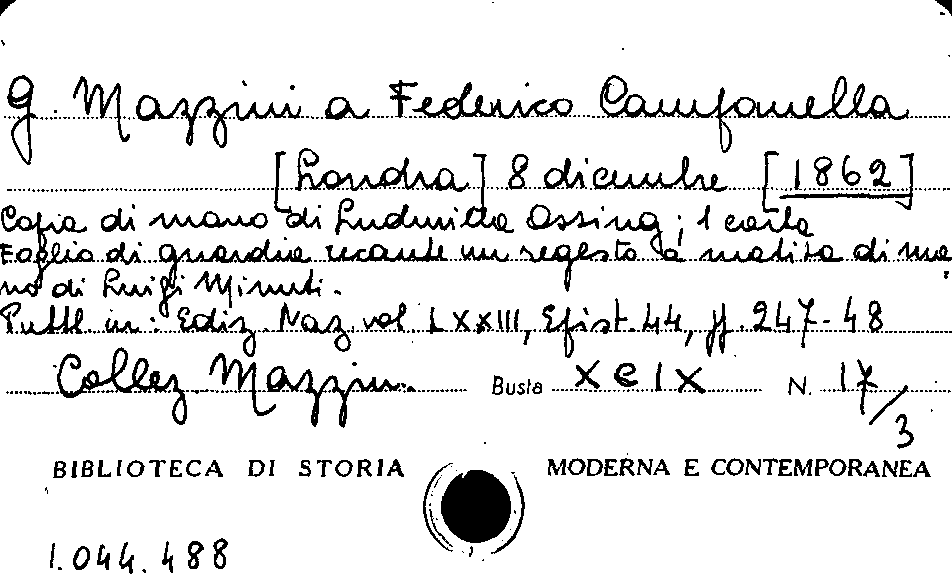 G. Mazzini a Federico Campanella
[Londra] 8 dicembre [1862]
Copia di mano di Ludmilla Assing; 1 carta
Foglio di guardia recante un regesto a matita di ma
no di Luigi Minuti.
Pubbl. in: Ediz. Naz. vol. LXXIII, Epist. 44, pp. 247-48
Collez. Mazzini. Busta XCIX N. 17/3
BIBLIOTECA DI STORIA MODERNA E CONTEMPORANEA
1.044.488